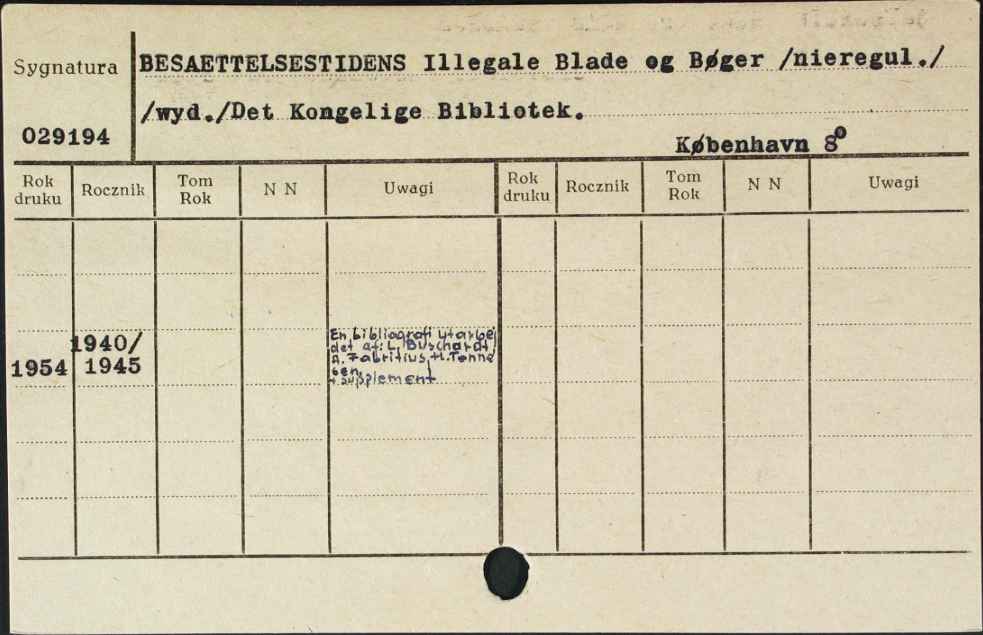 Sygnatura
BESAETTELSESTIDENS Illegale Blade og Bøger /nieregul./
/wyd./Det Kongelige Bibliotek.
029194
København 8°
Rok druku Rocznik Tom Rok N N Uwagi Rok druku Rocznik Tom Rok N N Uwagi
1954 1940/
1945
En bibliografi utarbe
det af: L. Buschardt,
A. Fabritius, H. Tønne
sen.
+ supplement